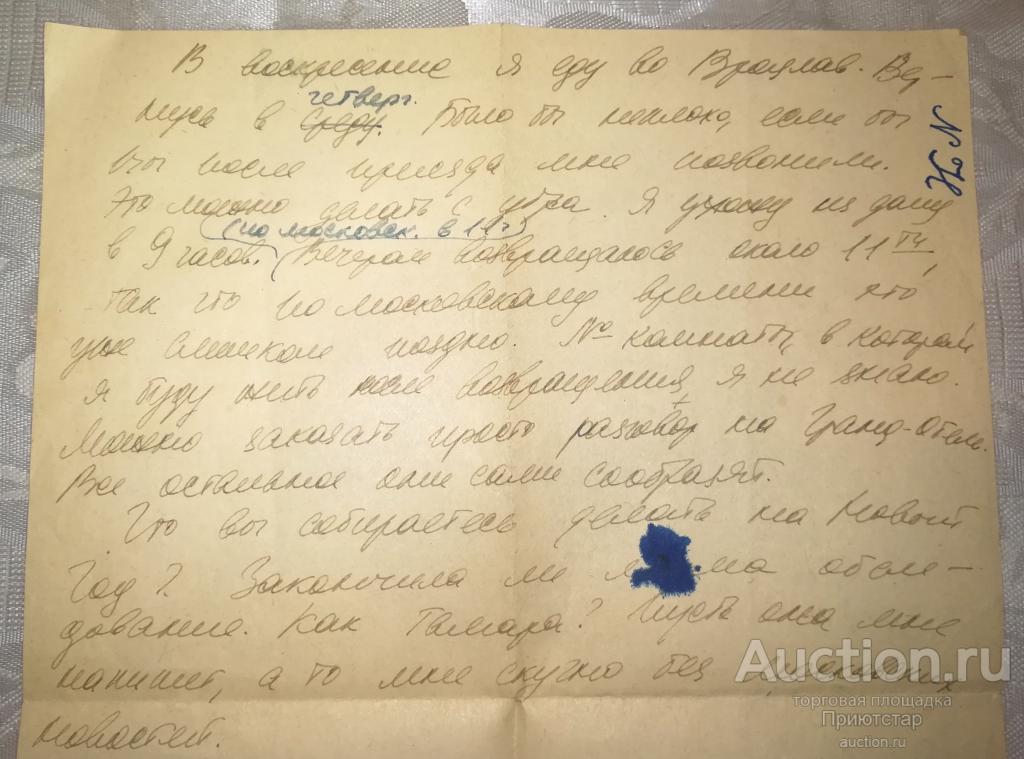 В воскресение я еду во Вроцлав. Вер-
четверг.
нусь в среду. Было бы неплохо, если бы
вы после приезда мне позвонили.
Это можно делать с утра. Я ухожу из дому
(по московск. в 11ч)
в 9 часов. Вечером возвращаюсь около 11ти,
так что по московскому времени это
уже слишком поздно. № комнаты, в которой
я буду жить после возвращения, я не знаю.
Можно заказать просто разговор на Гранд-отель.
Все остальное они сами сообразят.
Что вы собираетесь делать на Новый
Год? Закончила ли мама обсле-
дование. Как Тамара? Пусть она мне
напишет, а то мне скучно без
новостей.
Auction.ru
торговая площадка
Приютстар
auction.ru